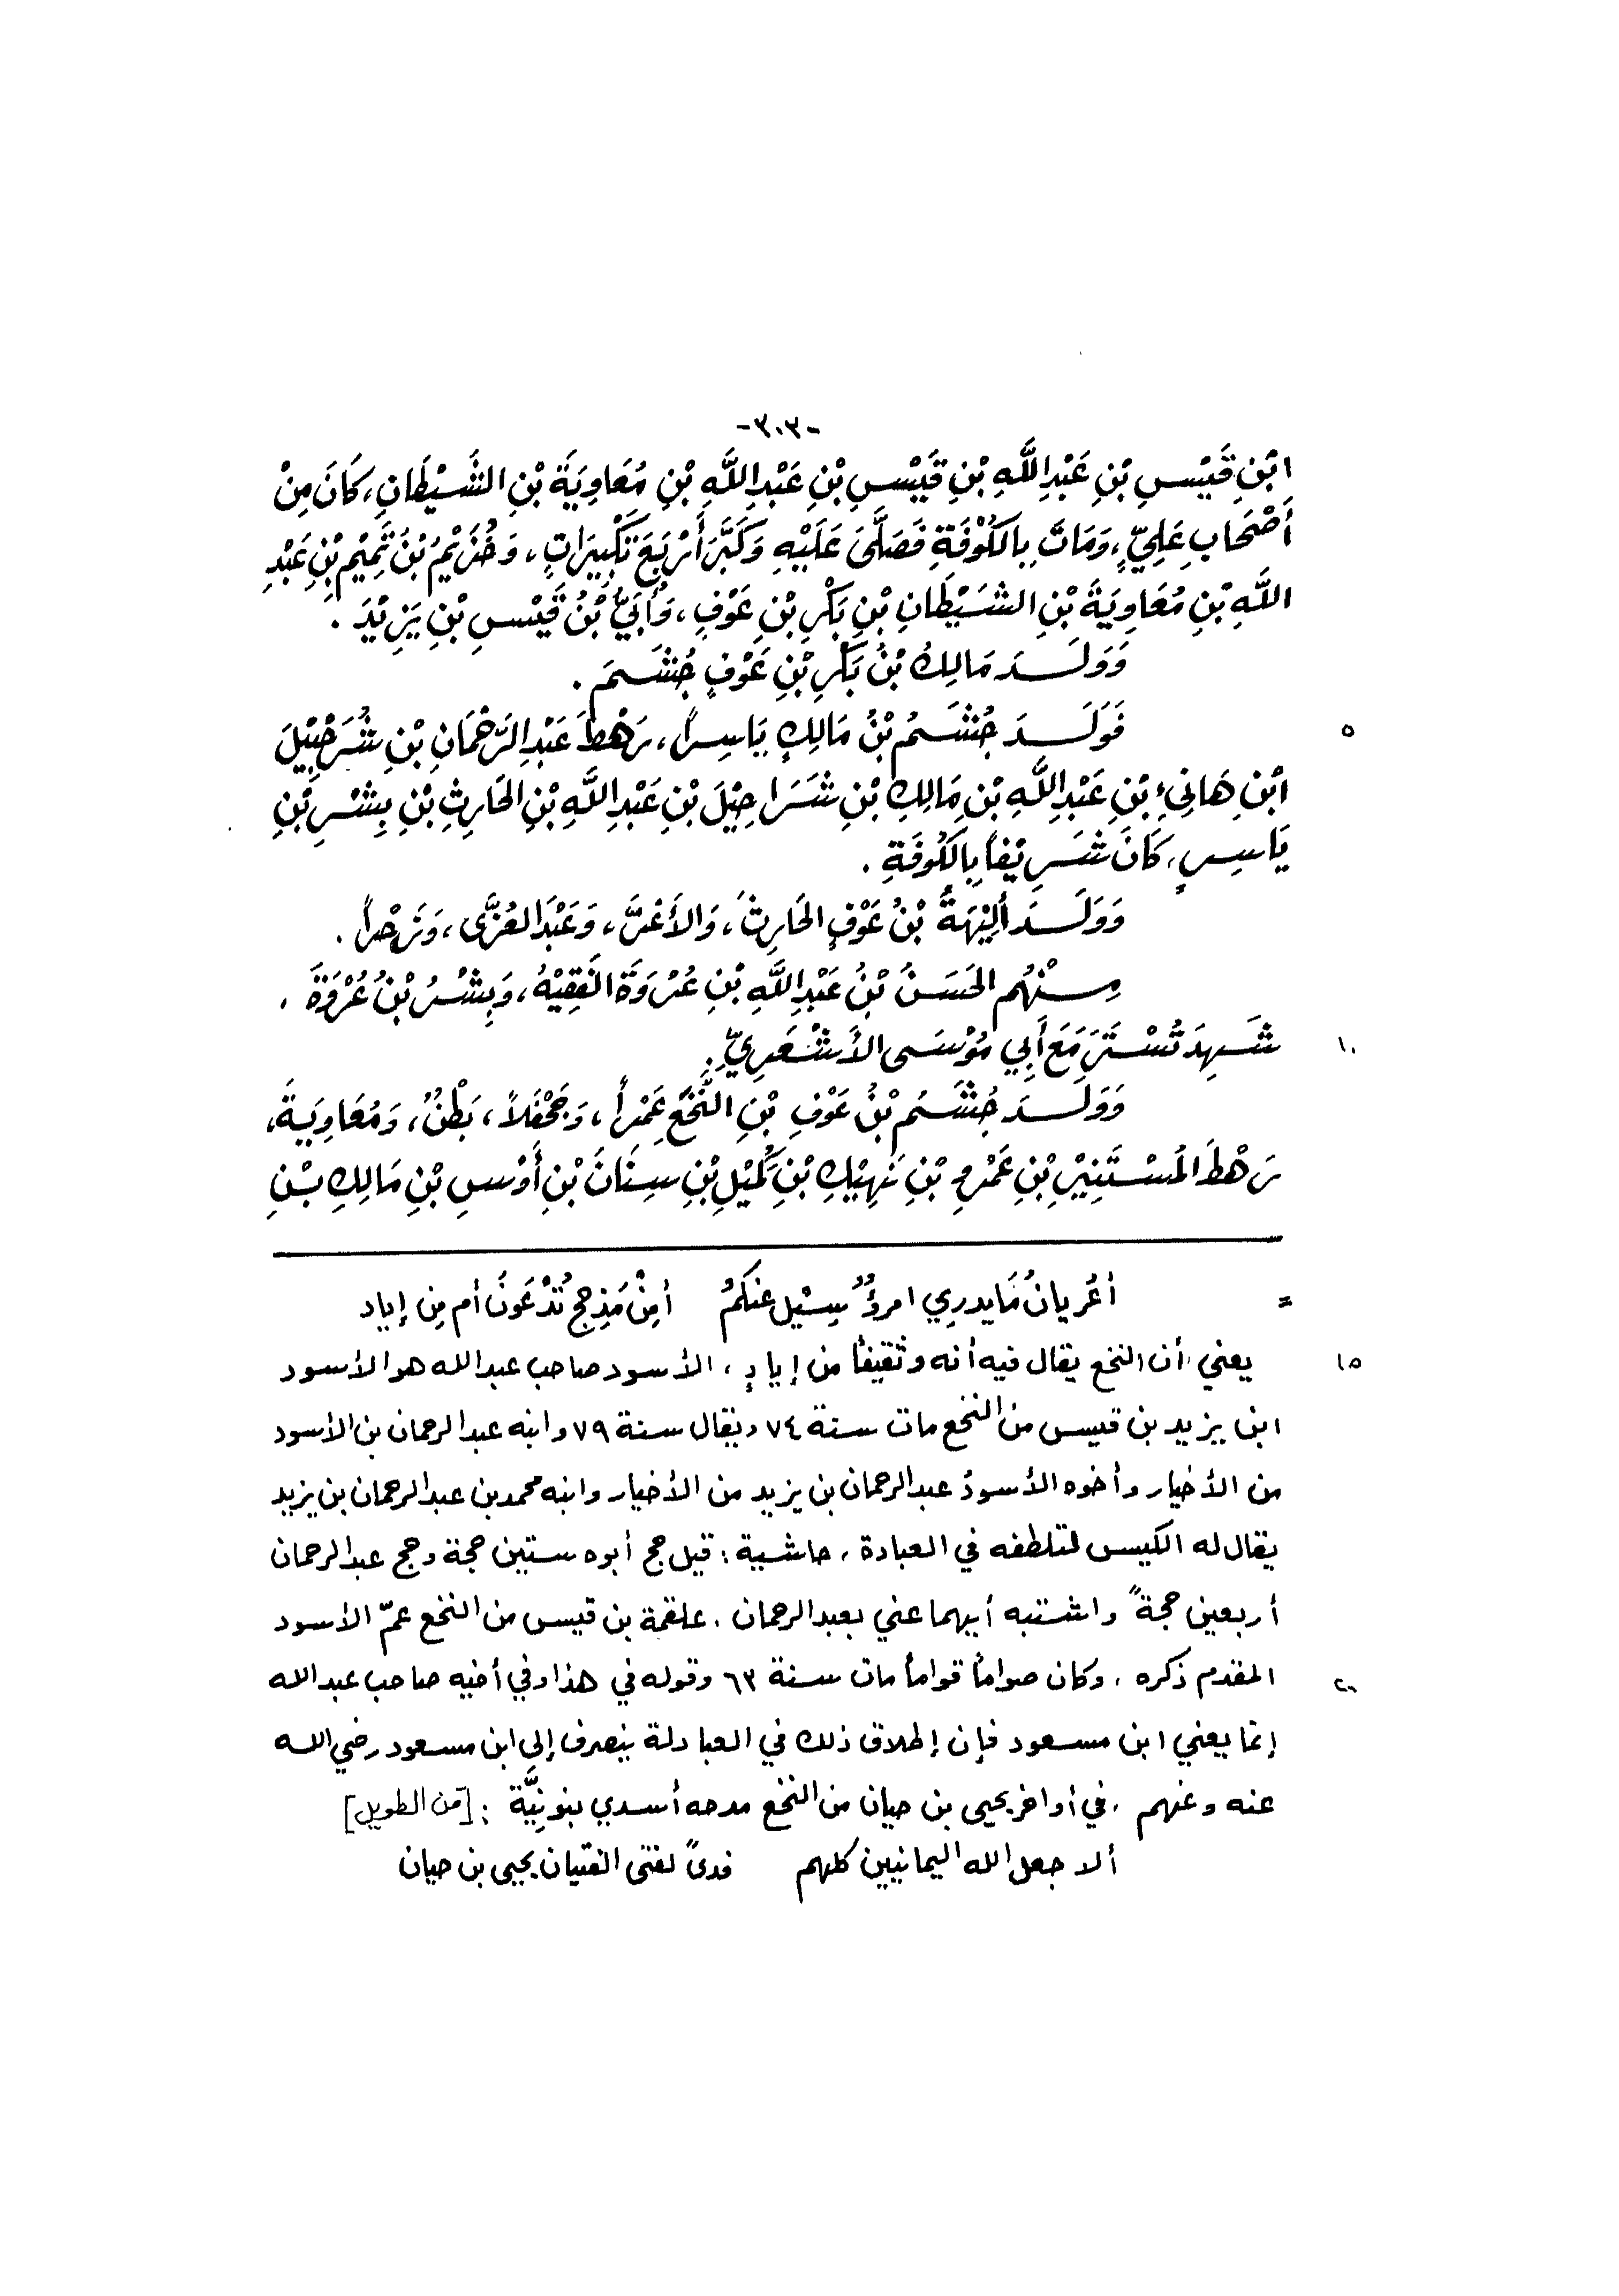 -٣٠٣-
ابْنِ قَيْسِ بْنِ عَبْدِ اللَّهِ بْنِ قَيْسِ بْنِ عَبْدِ اللَّهِ بْنِ مُعَاوِيَةَ بْنِ الشَّيْطَانِ، كَانَ مِنْ
أَصْحَابِ عَلِيٍّ، وَمَاتَ بِالكُوْفَةِ فَصَلَّى عَلَيْهِ وَكَبَّرَ أَرْبَعَ تَكْبِيرَاتٍ، وَخُزَيْمُ بْنُ تَمِيْمِ بْنِ عَبْدِ
اللَّهِ بْنِ مُعَاوِيَةَ بْنِ الشَّيْطَانِ بْنِ بَكْرِ بْنِ عَوْفٍ، وَأُبَيُّ بْنُ قَيْسِ بْنِ يَزِيْدَ.
وَوَلَدَ مَالِكُ بْنُ بَكْرِ بْنِ عَوْفٍ جُشَمَ.
فَوَلَدَ جُشَمُ بْنُ مَالِكٍ يَاسِراً، رَهْطَ عَبْدِ الرَّحْمَانِ بْنِ شُرَحْبِيْلَ ٥
ابْنِ هَانِئِ بْنِ عَبْدِ اللَّهِ بْنِ مَالِكِ بْنِ شَرَاحِيْلَ بْنِ عَبْدِ اللَّهِ بْنِ الحَارِثِ بْنِ بِشْرِ بْنِ
يَاسِرٍ، كَانَ شَرِيْفاً بِالكُوفَةِ.
وَوَلَدَ أَلِيْهَةُ بْنُ عَوْفٍ الحَارِثَ، وَالأَعْزَّ، وَعَبْدَ العُزَّى، وَزَحْراً.
مِنْهُم الحَسَنُ بْنُ عَبْدِ اللَّهِ بْنِ عُرْوَةَ الفَقِيْهُ، وَبِشْرُ بْنُ عُرْوَةَ،
شَهِدَ تُسْتَرَ مَعَ أَبِي مُوْسَى الأَشْعَرِيِّ. ١٠
وَوَلَدَ جُشَمُ بْنُ عَوْفِ بْنِ النَّخَعِ عَمْراً، وَجَحْفَلاً، بَطْنٌ، وَمُعَاوِيَةَ،
رَهْطَ المُسْتَنِيْرِ بْنِ عَمْرِو بْنِ نَهِيْكِ بْنِ كُمَيْلِ بْنِ سِنَانَ بْنِ أَوْسِ بْنِ مَالِكِ بْنِ
= أعُريانُ مَا يدرِي امرؤٌ سِيْل عنكمُ أمِنْ مَذحِج تُدْعَونَ أم مِن إياد
يعني: أن النخع يقال فيه أنه وثقيفاً من إيادٍ، الأسود صاحب عبد الله هو الأسود ١٥
ابن يزيد بن قيس من النخع مات سنة ٧٤ ويقال سنة ٧٩ وابنه عبد الرحمان بن الأسود
من الأخيار وأخوه الأسودُ عبد الرحمان بن يزيد من الأخيار وابنه محمد بن عبد الرحمان بن يزيد
يقال له الكيس لتلطفه في العبادة، حاشية: قيل حج أبوه ستين حجة وحج عبد الرحمان
أربعين حجةً واشتبه أيهما عني بعبد الرحمان. علقمة بن قيس من النخع عمّ الأسود
المقدم ذكره، وكان صواماً قواماً مات سنة ٦٣ وقوله في هذا وفي أخيه صاحب عبد الله ٢٠
إنما يعني ابن مسعود فإن إطلاق ذلك في العبادلة ينصرف إلى ابن مسعود رضي الله
عنه وعنهم. في أواخر يحيى بن حيان من النخع مدحه أسدي بنونيَّة: [من الطويل]
ألا جعل الله اليمانيين كلهم فدىً لفتى الفتيان يحيى بن حيان